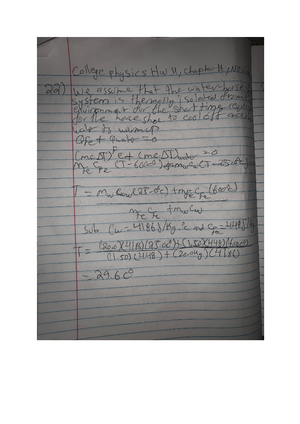 College physics HW 11, chapter 11,
22) We assume that the water-horse
system is thermally isolated from
environment for the short time required
for the horseshoe to cool off and
water to warm up
Qfe + Qwater = 0
(mcΔT)Fe + (mcΔT)water = 0
mFe cFe (T-600°C) + mw cw (T-25.0°C)
T = mw cw (25.0°C) + mFe cFe (600°C)
mFe cFe + mw cw
Sub cw = 4186 J/kg·°C and cFe = 448 J/kg
T = (20.0)(4186)(25.0°C) + (1.50)(448)(600°C)
(1.50)(448) + (20.0kg)(4186)
= 29.6 C°